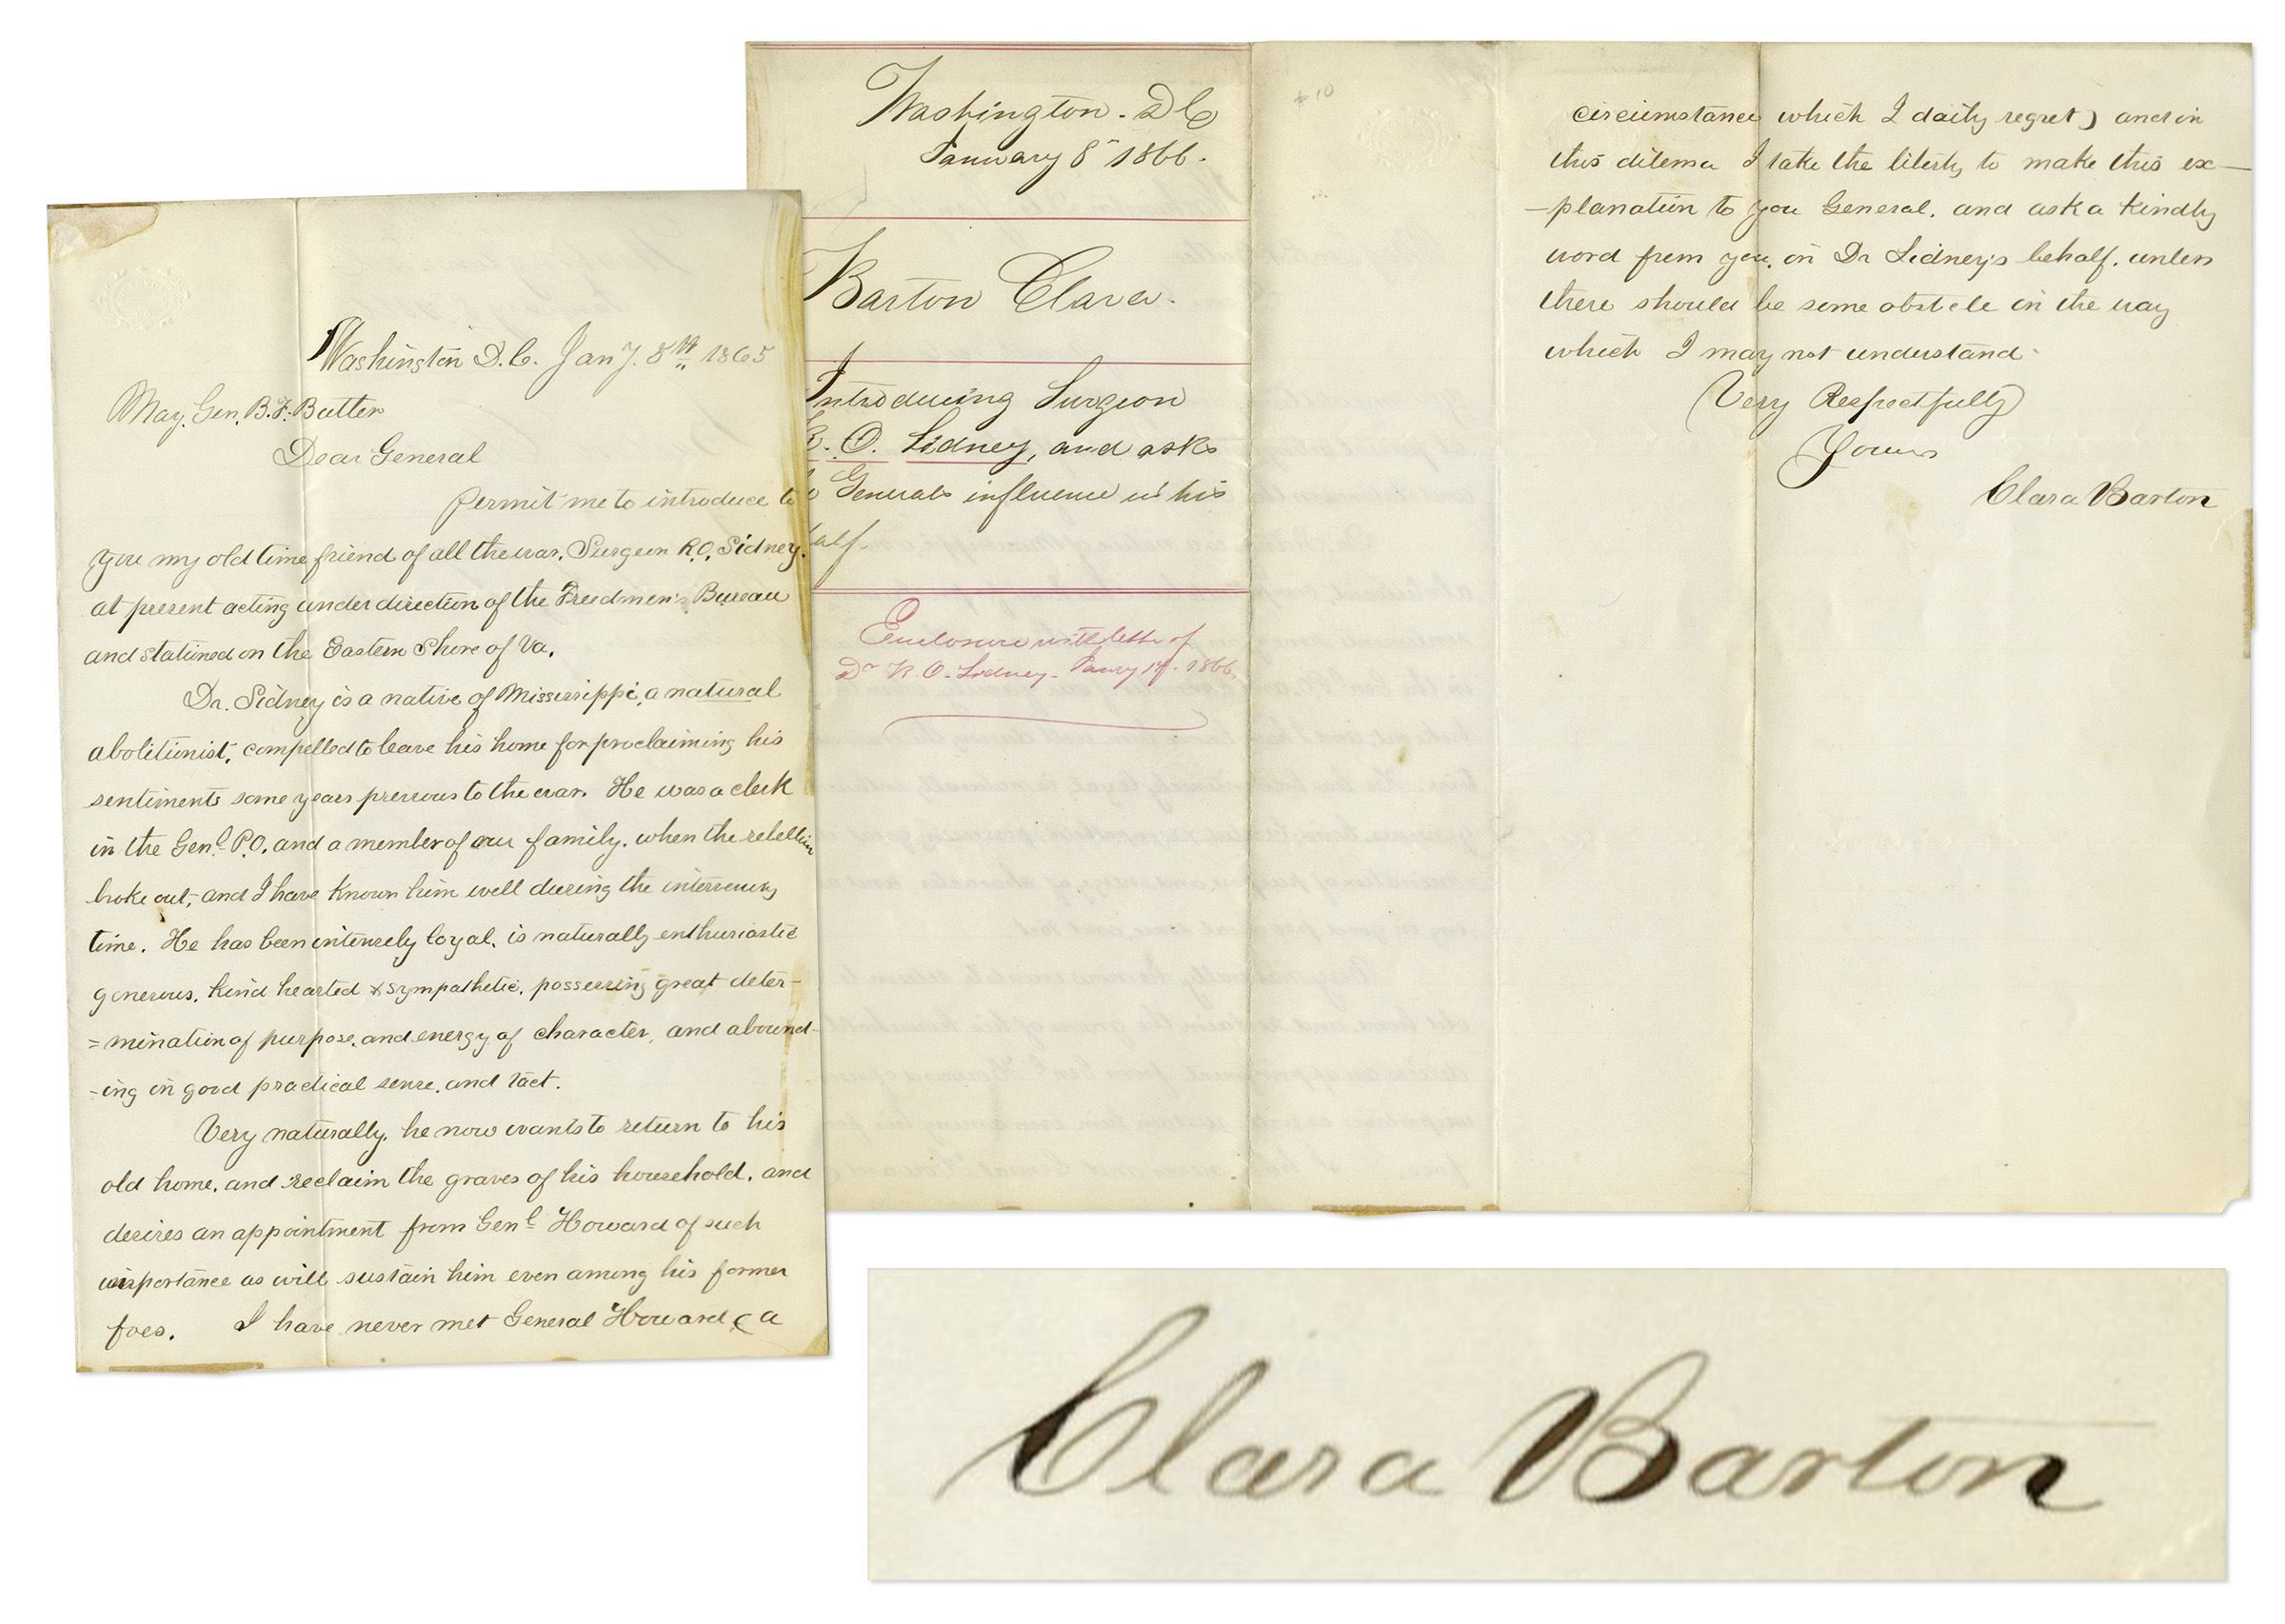 Washington D.C. Jany. 8th 1865
Maj. Gen. B. F. Butler
Dear General
Permit me to introduce to
you my old time friend of all the war, Surgeon R.O. Sidney.
at present acting under direction of the Freedmen's Bureau
and stationed on the Eastern Shore of Va.
Dr. Sidney is a native of Mississippi, a natural
abolitionist, compelled to leave his home for proclaiming his
sentiments some years previous to the war. He was a clerk
in the Genl P.O. and a member of our family, when the rebellion
broke out, and I have known him well during the intervening
time. He has been intensely loyal, is naturally enthusiastic
generous, kind hearted & sympathetic, possessing great deter-
=mination of purpose, and energy of character, and abound-
-ing in good practical sense, and tact.
Very naturally, he now wants to return to his
old home, and reclaim the graves of his household, and
desires an appointment from Genl Howard of such
importance as will sustain him even among his former
foes. I have never met General Howard ( a
Washington. DC
January 8" 1866.
Barton Clara.
Introducing Surgeon
R. O. Sidney, and asks
Generals influence in his
half.
Enclosure with letter of
Dr R. O. Sidney. Jany 1866.
#10
circumstance which I daily regret ) and in
this dilema I take the liberty to make this ex-
-planation to you General, and ask a kindly
word from you, on Dr Sidney's behalf, unless
there should be some obstcle in the way
which I may not understand.
Very Respectfully
Yours
Clara Barton
Clara Barton